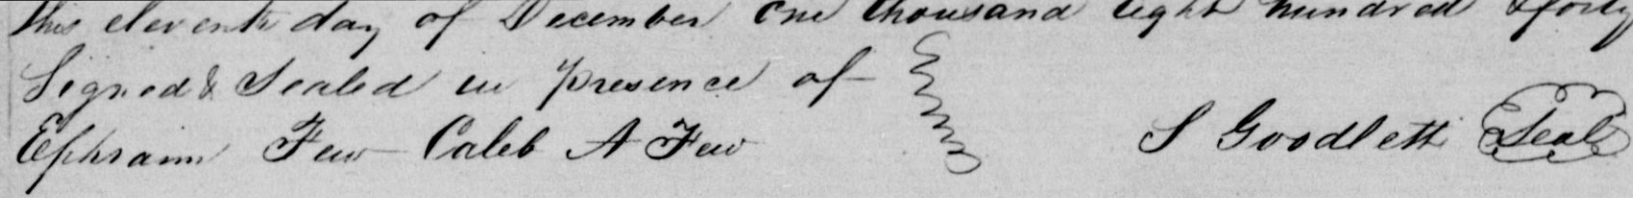 this eleventh day of December one thousand eight hundred & forty
Signed & Sealed in presence of
Ephraim Few Caleb A Few S Goodlett Seal